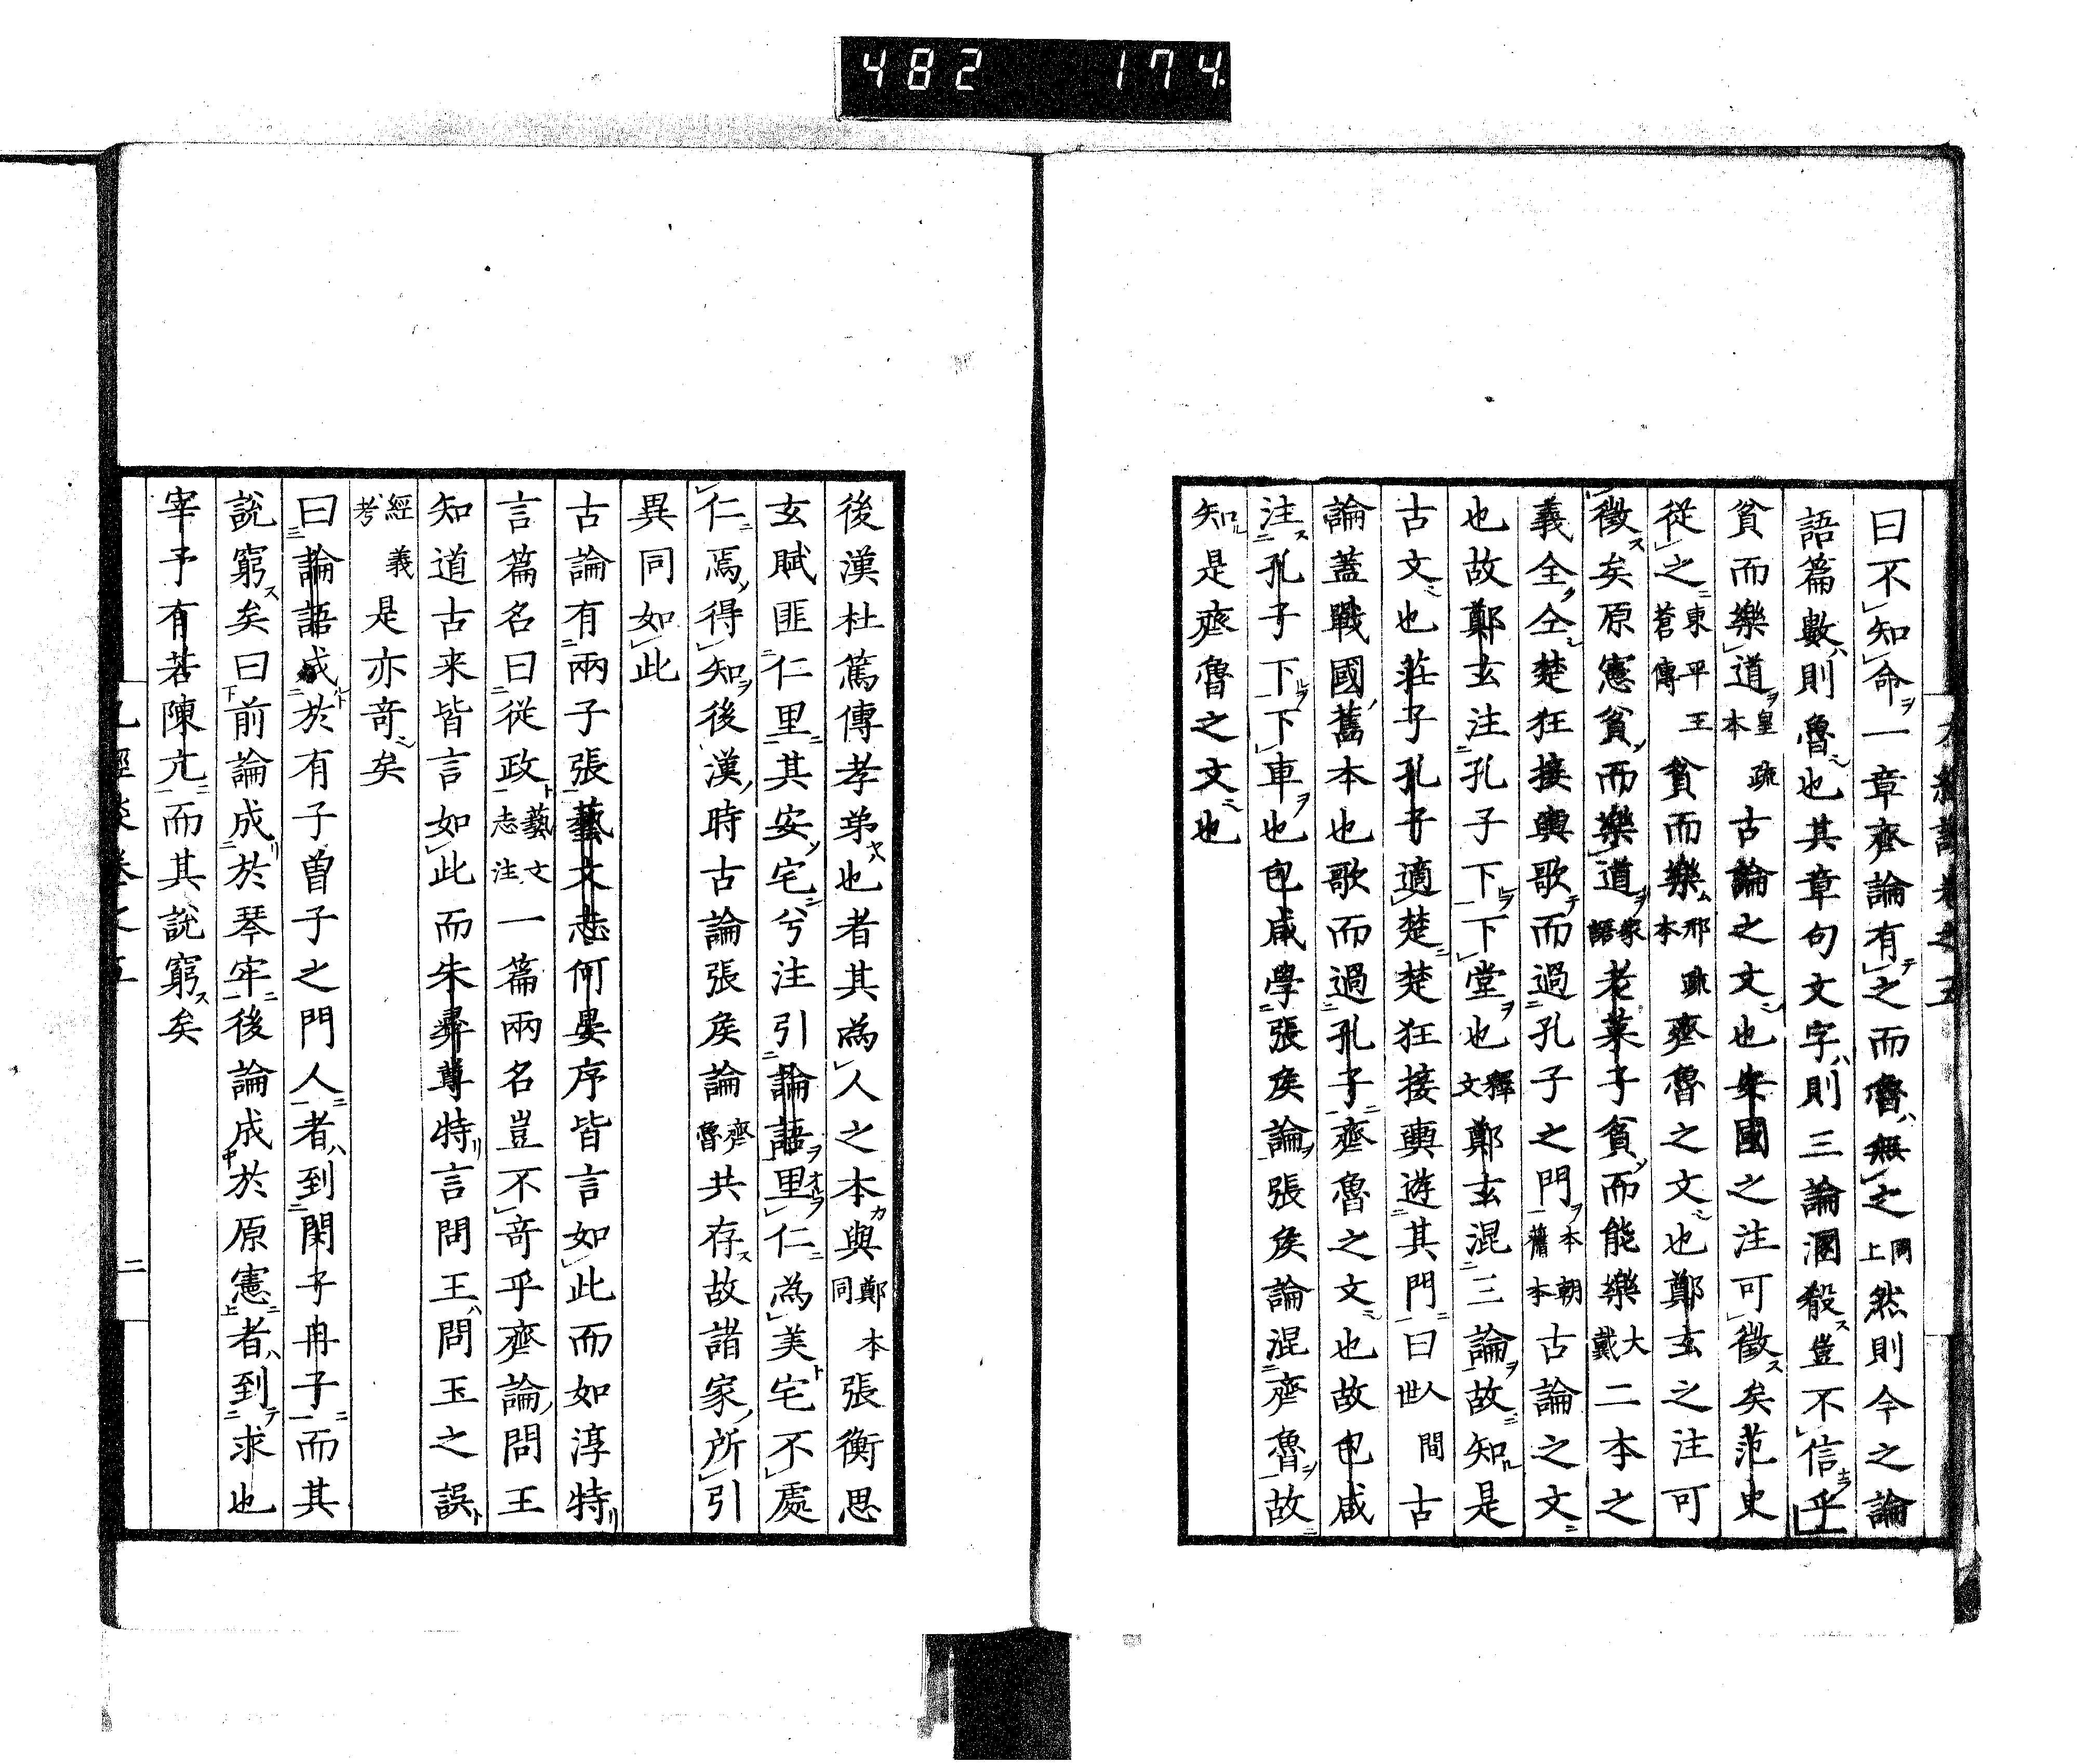 482 174
曰不知命一章齊論有之而魯無之同上然則今之論
語篇數則魯也其章句文字則三論溷殽豈不信乎
貧而樂道皇本疏古論之文也朱國之注可徵矣范史
從之東平王蒼傳貧而樂邢疏本齊魯之文也鄭玄之注可
徵矣原憲貧而樂道家語老萊子貧而能樂大戴二本之
義全仝楚狂接輿歌而過孔子之門本朝舊本古論之文
也故鄭玄注孔子下下堂也釋文鄭玄混三論故知是
古文也莊子孔子適楚楚狂接輿遊其門曰人間世古
論蓋戰國舊本也歌而過孔子齊魯之文也故包咸
注孔子下下車也包咸學張侯論張侯論混齊魯故
知是齊魯之文也
後漢杜篤傳孝弟也者其為人之本與鄭本同張衡思
玄賦匪仁里其安宅兮注引論語里仁為美宅不處
仁焉得知後漢時古論張侯論齊魯共存故諸家所引
異同如此
古論有兩子張藝文志何晏序皆言如此而如淳特
言篇名曰從政藝文志注一篇兩名豈不奇乎齊論問王
知道古来皆言如此而朱彝尊特言問王問玉之誤
經義考是亦奇矣
曰論語成於有子曾子之門人者到閔子冉子而其
說窮矣曰前論成於琴牢後論成於原憲者到求也
宰予有若陳亢而其說窮矣
九經談卷之五
二